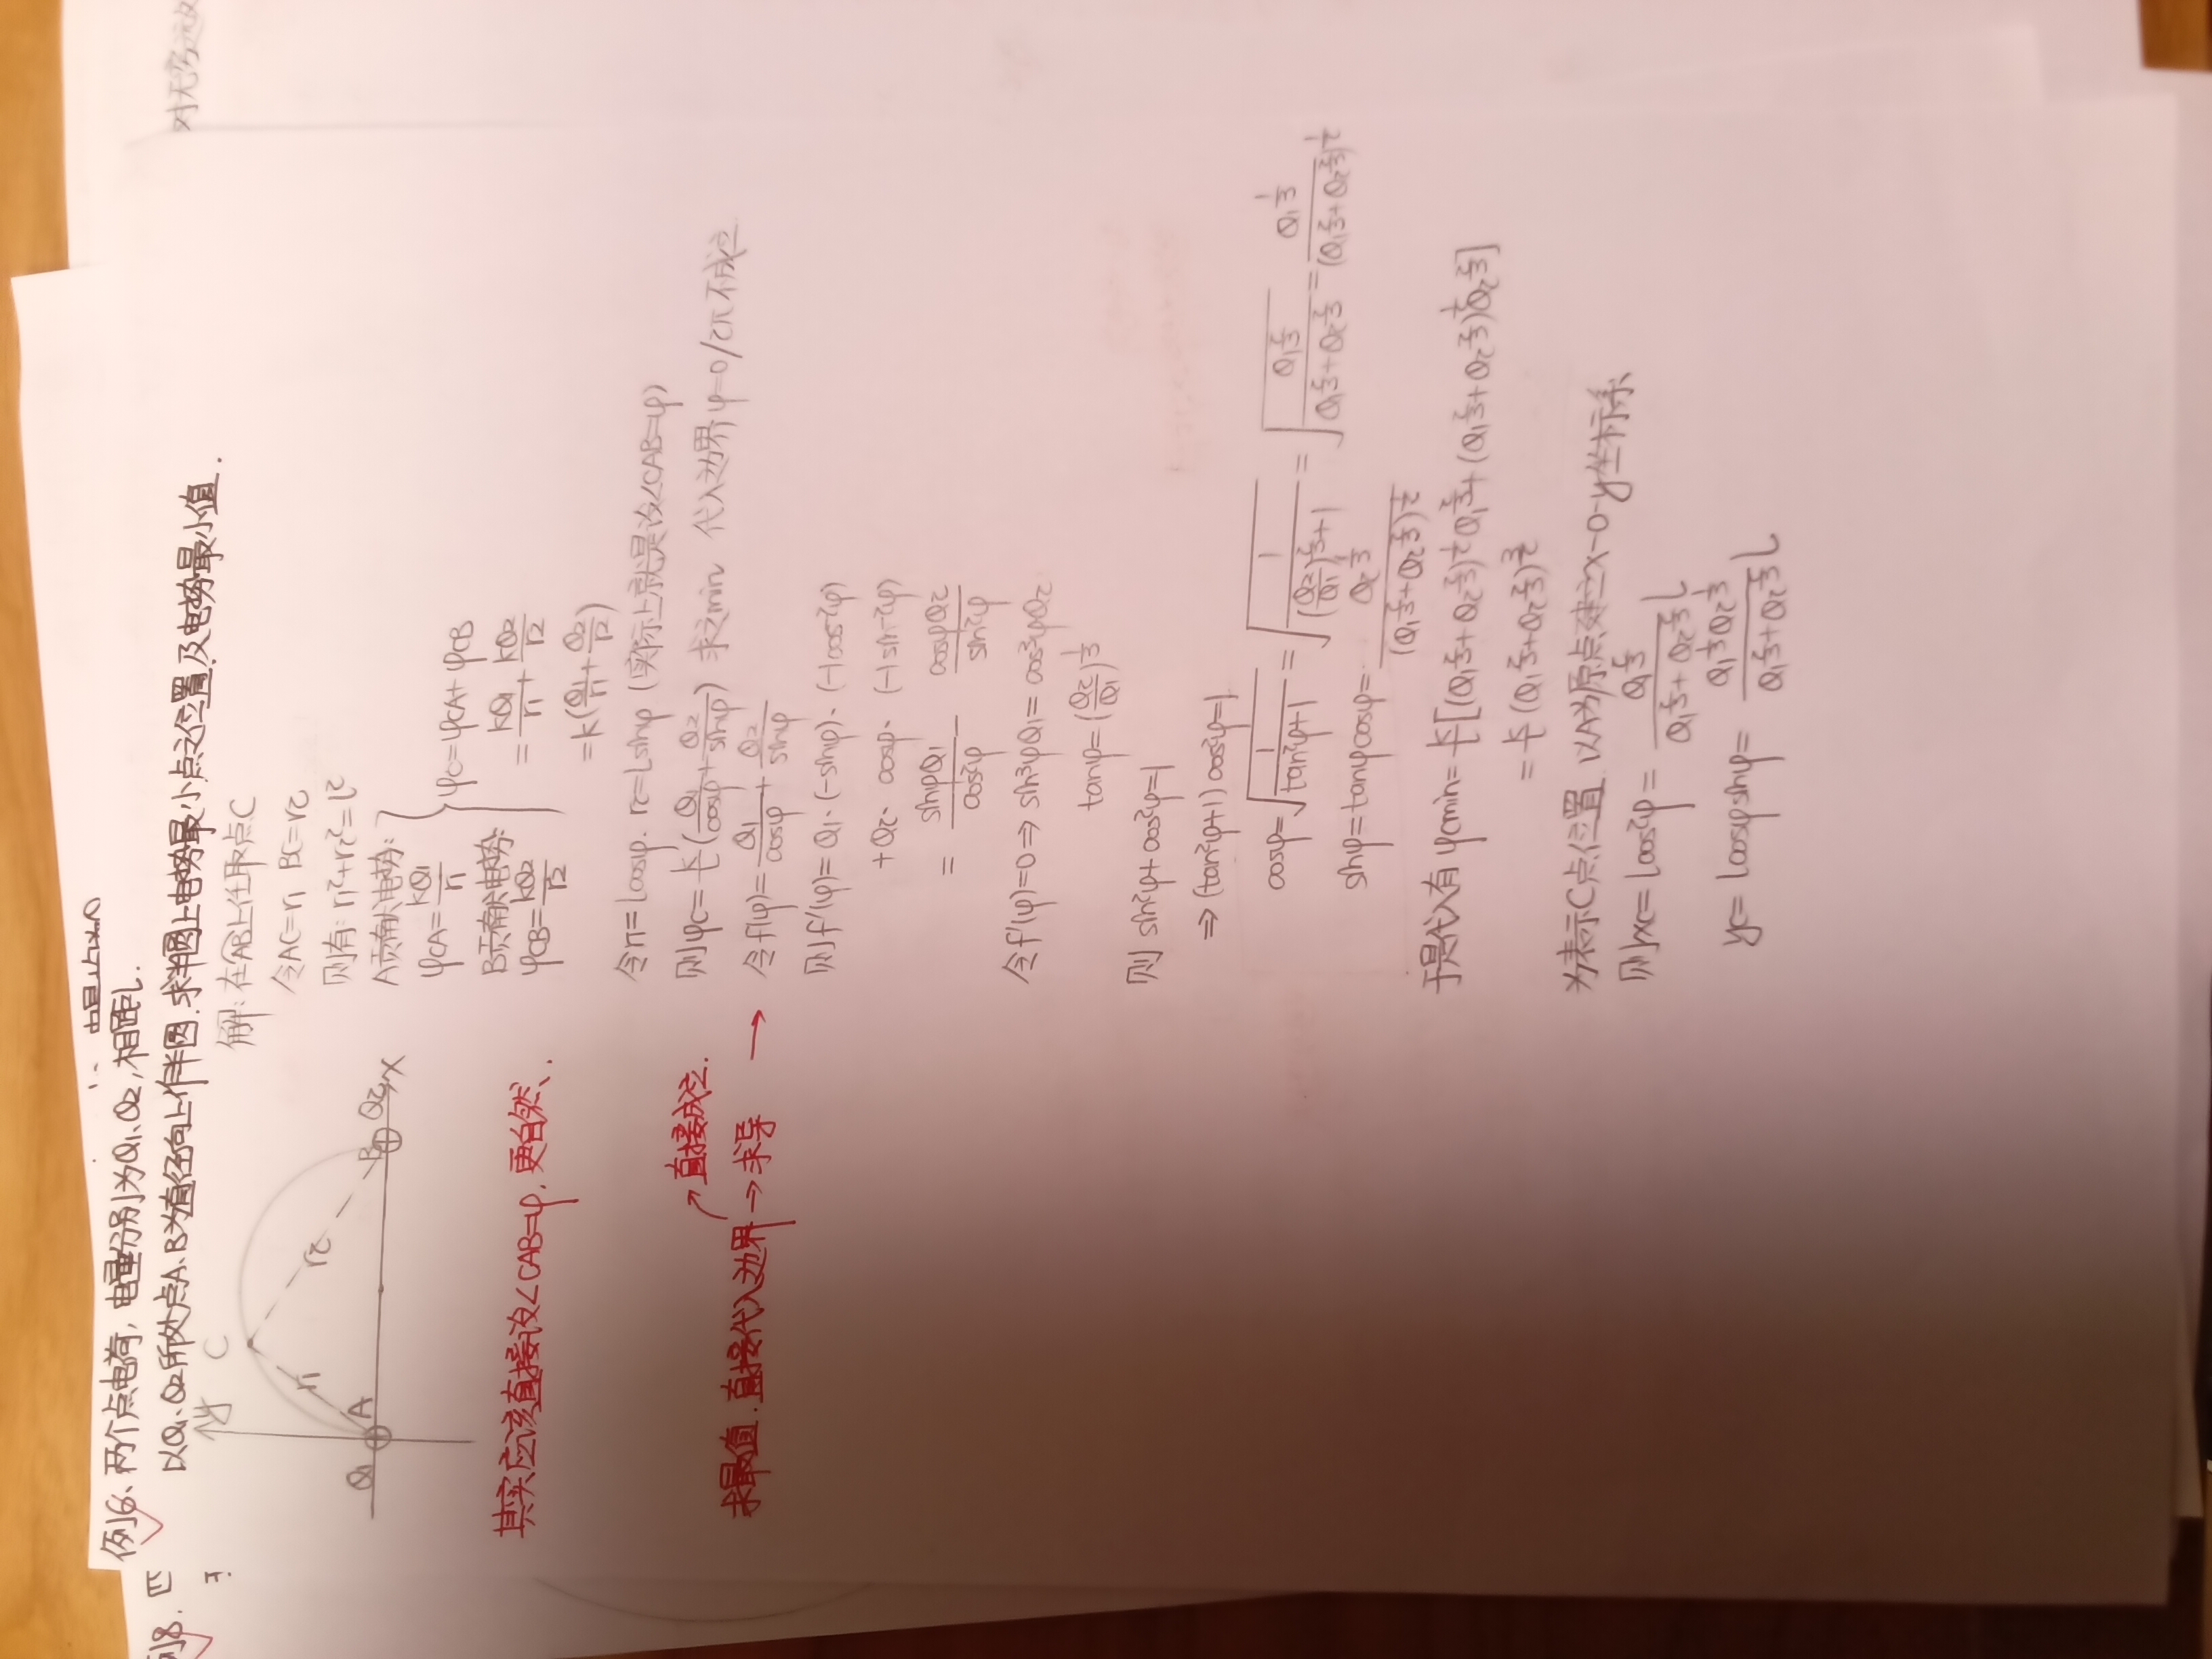 对无穷远
例6、两个点电荷，电量分别为Q₁、Q₂，相距L.
以Q₁、Q₂所处点A、B为直径向上作半圆.求半圆上电势最小点之位置及电势最小值.
例8. 四
y
C
r₁
r₂
Q₁
A
B
Q₂
x
解:在AB上任取点C
令AC=r₁ BC=r₂
则有: r₁²+r₂²=L²
A贡献电势:
φCA=kQ₁/r₁
B贡献电势:
φCB=kQ₂/r₂
φC=φCA+φCB
=kQ₁/r₁+kQ₂/r₂
=k(Q₁/r₁+Q₂/r₂)
其实应该直接设∠CAB=φ,更自然.
令r₁=Lcosφ. r₂=Lsinφ (实际上就是设∠CAB=φ)
则φC=k/L(Q₁/cosφ+Q₂/sinφ) 求之min 代入边界φ=0/2π不成立
直接成立.
求最值.直接代入边界→求导 →
令f(φ)=Q₁/cosφ+Q₂/sinφ
则f'(φ)=Q₁·(-sinφ)·(-1/cos²φ)
+Q₂·cosφ·(-1/sin²φ)
=sinφQ₁/cos²φ-cosφQ₂/sin²φ
令f'(φ)=0⇒sin³φQ₁=cos³φQ₂
tanφ=(Q₂/Q₁)^(1/3)
则 sin²φ+cos²φ=1
⇒(tan²φ+1)cos²φ=1
cosφ=√(1/(tan²φ+1))=√(1/((Q₂/Q₁)^(2/3)+1))=√(Q₁^(2/3)/(Q₁^(2/3)+Q₂^(2/3)))=Q₁^(1/3)/(Q₁^(2/3)+Q₂^(2/3))^(1/2)
sinφ=tanφcosφ=Q₂^(1/3)/(Q₁^(2/3)+Q₂^(2/3))^(1/2)
于是代入有φCmin=k/L[(Q₁^(2/3)+Q₂^(2/3))^(1/2)Q₁^(2/3)+(Q₁^(2/3)+Q₂^(2/3))^(1/2)Q₂^(2/3)]
=k/L(Q₁^(2/3)+Q₂^(2/3))^(3/2)
为表示C点位置.以A为原点建立x-O-y坐标系
则xC=Lcos²φ=Q₁^(2/3)/(Q₁^(2/3)+Q₂^(2/3))L
yC=Lcosφsinφ=Q₁^(1/3)Q₂^(1/3)/(Q₁^(2/3)+Q₂^(2/3))L